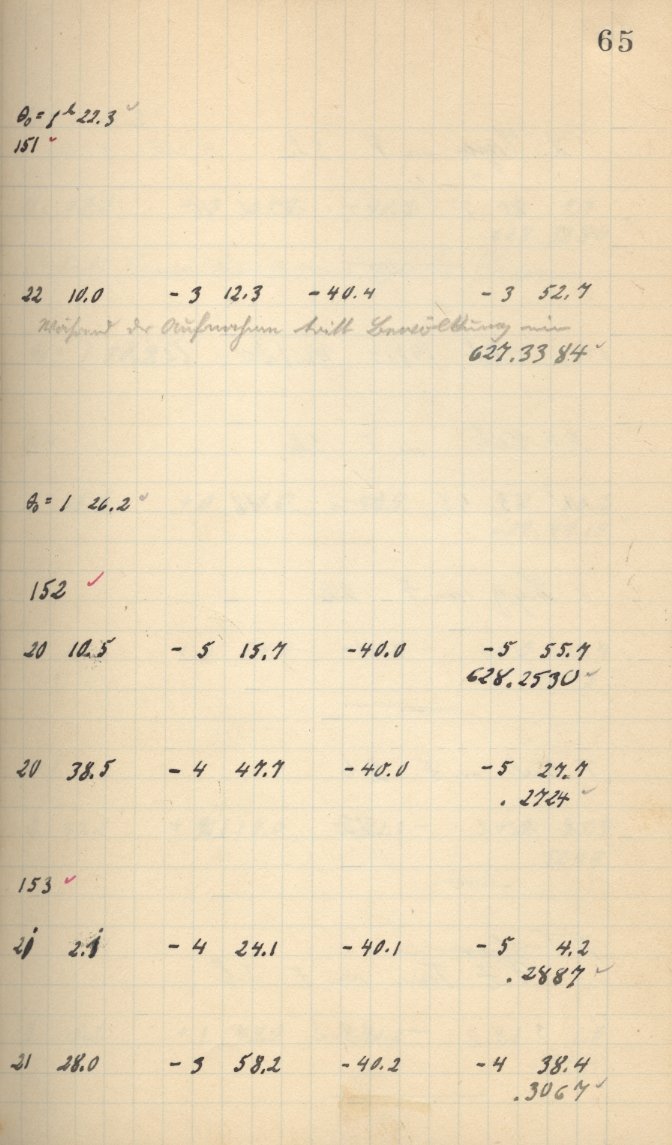 65
θ₀ = 1ʰ 22.3 ✓
151 ✓
22 10.0 - 3 12.3 - 40.4 - 3 52.7
Während der Aufnahme tritt Bewölkung ein
627.3384 ✓
θ₀ = 1 26.2 ✓
152 ✓
20 10.5 - 5 15.7 - 40.0 - 5 55.7
628.2530 ✓
20 38.5 - 4 47.7 - 40.0 - 5 27.7
. 2724 ✓
153 ✓
21 2.1 - 4 24.1 - 40.1 - 5 4.2
. 2887 ✓
21 28.0 - 3 58.2 - 40.2 - 4 38.4
. 3067 ✓